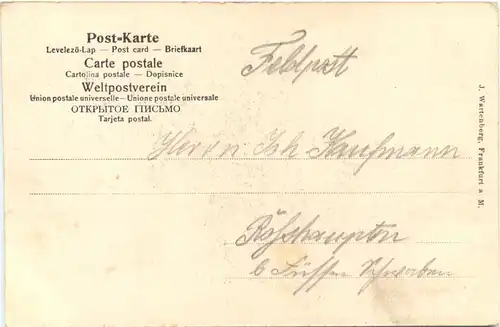 Post-Karte
Levelező-Lap — Post card — Briefkaart
Carte postale
Cartolina postale — Dopisnice
Weltpostverein
Union postale universelle — Unione postale universale
ОТКРЫТОЕ ПИСЬМО
Tarjeta postal.
Feldpost
Herrn Joh Kaufmann
Roßhaupten
b Füssen Schwaben
J. Wartenberg, Frankfurt a M.